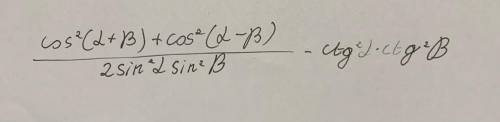 cos²(α+β)+cos²(α-β)
2sin²α sin²β
- ctg²α·ctg²β